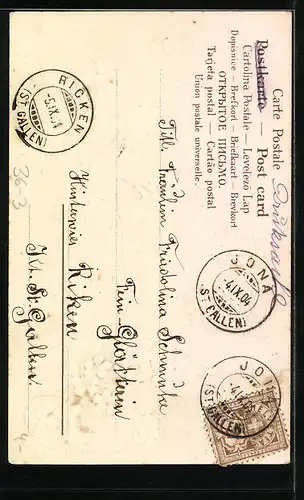 Carte Postale
Postkarte — Post card
Cartolina Postale — Levelező Lap
Dopisnice — Brefkort — Briefkaart — Brevkort
ОТКРЫТОЕ ПИСЬМО.
Tarjeta postal — Cartão postal
Union postale universelle.
Drucksache
JONA
-4.IX.04
(ST GALLEN)
JONA
(ST GALLEN)
RICKEN
-5.IX.04
(ST GALLEN)
Tit. Fräulein Fridolina
Hinterer Riken
Kt. St. Gallen.
36.3